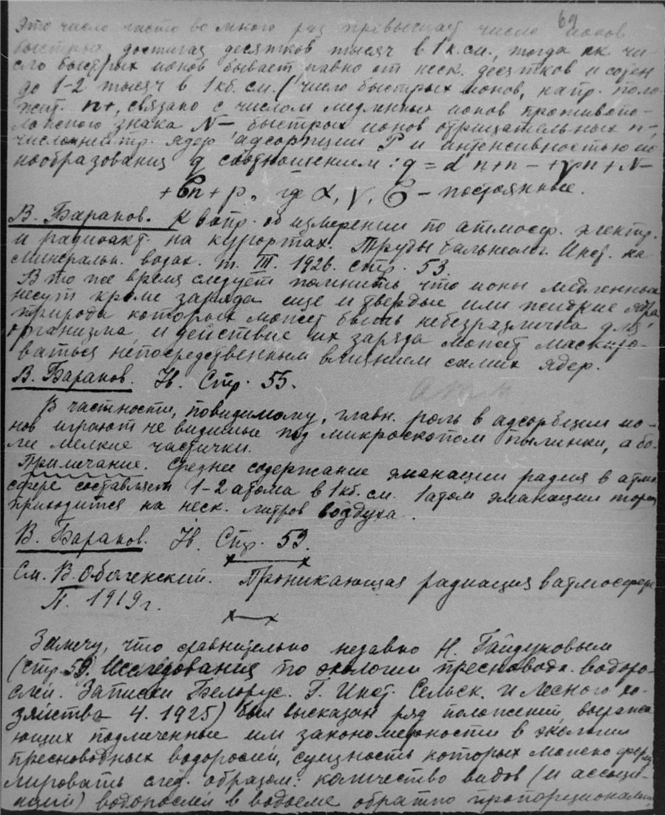 69
Это число часто во много раз превышает число ионов
быстрых достигая десятков тысяч в 1 к.см., тогда как чи-
сло быстрых ионов бывает равно от неск. десятков и сотен
до 1-2 тысяч в 1 кб. см. (число быстрых ионов, напр. поло-
жит. n+, связано с числом медленных ионов противопо-
ложного знака N- быстрых ионов отрицательных n-,
ядер адсорпции P и интенсивностью ио
нообразования q соотношением: q = α n+n- + γ n+N-
+ б n+p, где α, γ, б - постоянные.
В. Баранов. К вопр. об измерении по атмосф. электр.
и радиоакт. на курортах. Труды бальнеолог. Инст. на
минеральн. водах. т. III. 1926. стр. 53.
В то же время следует помнить что ионы медленные
несут кроме заряда еще и твердые или жидкие ядра
природа которых может быть небезразлична для
организма и действие их заряда может маскиро-
ваться непосредственным влиянием самих ядер.
В. Баранов. Ib. Стр. 55.
В частности, повидимому, главн. роль в адсорбции ио-
нов играют не видимые под микроскопом пылинки, а бо-
ле мелкие частички.
Примечание. Среднее содержание эманации радия в атмо
сфере составляет 1-2 атома в 1 кб. см. 1 атом эманации тория
приходится на неск. литров воздуха.
В. Баранов. Ib. Стр. 59.
См. В. Оболенский. Проникающая радиация в атмосфере
П. 1919 г.
Замечу, что сравнительно недавно Н. Гайдуковым
(стр. 59 Исследования по экологии пресновод. водоро-
слей. Записки Белорус. Г. Инст. Сельск. и Лесного хо-
зяйства 4. 1925) был высказан ряд положений, выража-
ющих подмеченные им закономерности в экологии
пресноводных водорослей, сущность которых можно форму
лировать след. образом: количество видов (и ассоци-
аций) водорослей в водоеме обратно пропорционально